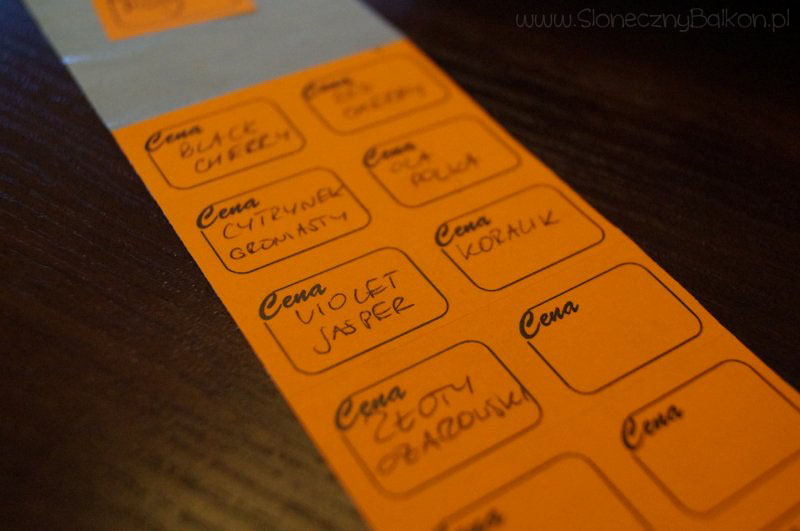 www.SlonecznyBalkon.pl
Cena
BLACK
CHERRY
Cena
CHERRY
Cena
CYTRYNEK
GRONIASTY
Cena
OLA
POLKA
Cena
VIOLET
JASPER
Cena
KORALIK
Cena
ZŁOTY
OŻAROWSKI
Cena
Cena
Cena